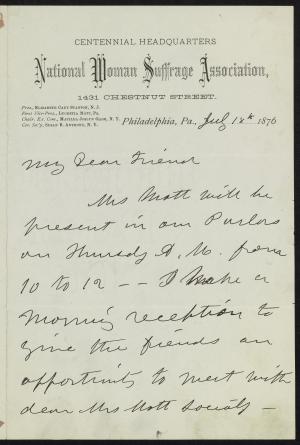 CENTENNIAL HEADQUARTERS
National Woman Suffrage Association,
1431 CHESTNUT STREET.
Pres., ELIZABETH CADY STANTON, N. J.
First Vice-Pres., LUCRETIA MOTT, Pa.
Chair. Ex. Com., MATILDA JOSLYN GAGE, N. Y.
Cor. Sec'y, SUSAN B. ANTHONY, N. Y.
Philadelphia, Pa., July 18th 1876
My Dear Friend
Mrs Mott will be
present in our Parlors
on Thursdy A. M. from
10 to 12 — — I make a
morning reception to
give the friends an
opportunity to meet with
dear Mrs Mott socially —